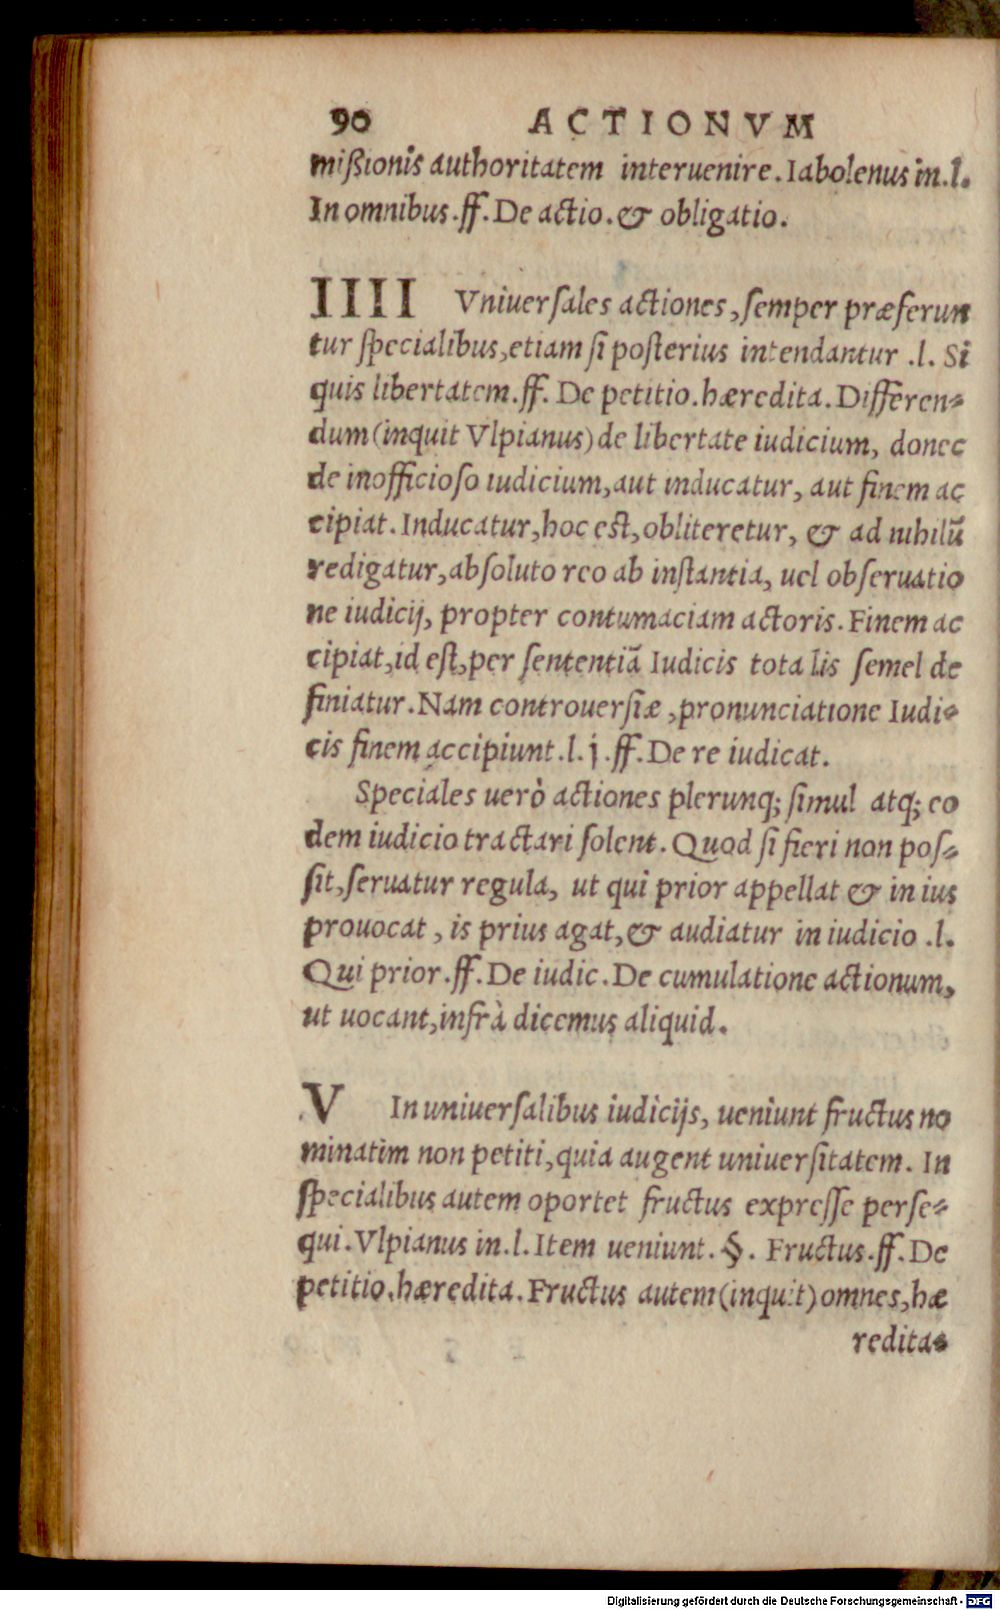 90 ACTIONVM
mißionis authoritatem interuenire. Iabolenus in.l.
In omnibus.ff. De actio. & obligatio.
IIII Vniuersales actiones, semper præferun
tur specialibus, etiam si posterius intendantur .l. Si
quis libertatem.ff. De petitio. hæredita. Differen-
dum (inquit Vlpianus) de libertate iudicium, donec
de inofficioso iudicium, aut inducatur, aut finem ac
cipiat. Inducatur, hoc est, obliteretur, & ad nihilũ
redigatur, absoluto reo ab instantia, uel obseruatio
ne iudicij, propter contumaciam actoris. Finem ac
cipiat, id est, per sententiã Iudicis tota lis semel de
finiatur. Nam controuersiæ, pronunciatione Iudi-
cis finem accipiunt .l. j .ff. De re iudicat.
Speciales uerò actiones plerunq; simul atq; eo
dem iudicio tractari solent. Quod si fieri non pos-
sit, seruatur regula, ut qui prior appellat & in ius
prouocat, is prius agat, & audiatur in iudicio .l.
Qui prior.ff. De iudic. De cumulatione actionum,
ut uocant, infrà dicemus aliquid.
V In uniuersalibus iudicijs, ueniunt fructus no
minatim non petiti, quia augent uniuersitatem. In
specialibus autem oportet fructus expresse perse-
qui. Vlpianus in.l. Item ueniunt. §. Fructus.ff. De
petitio. hæredita. Fructus autem (inquit) omnes, hæ
redita-
Digitalisierung gefördert durch die Deutsche Forschungsgemeinschaft - DFG